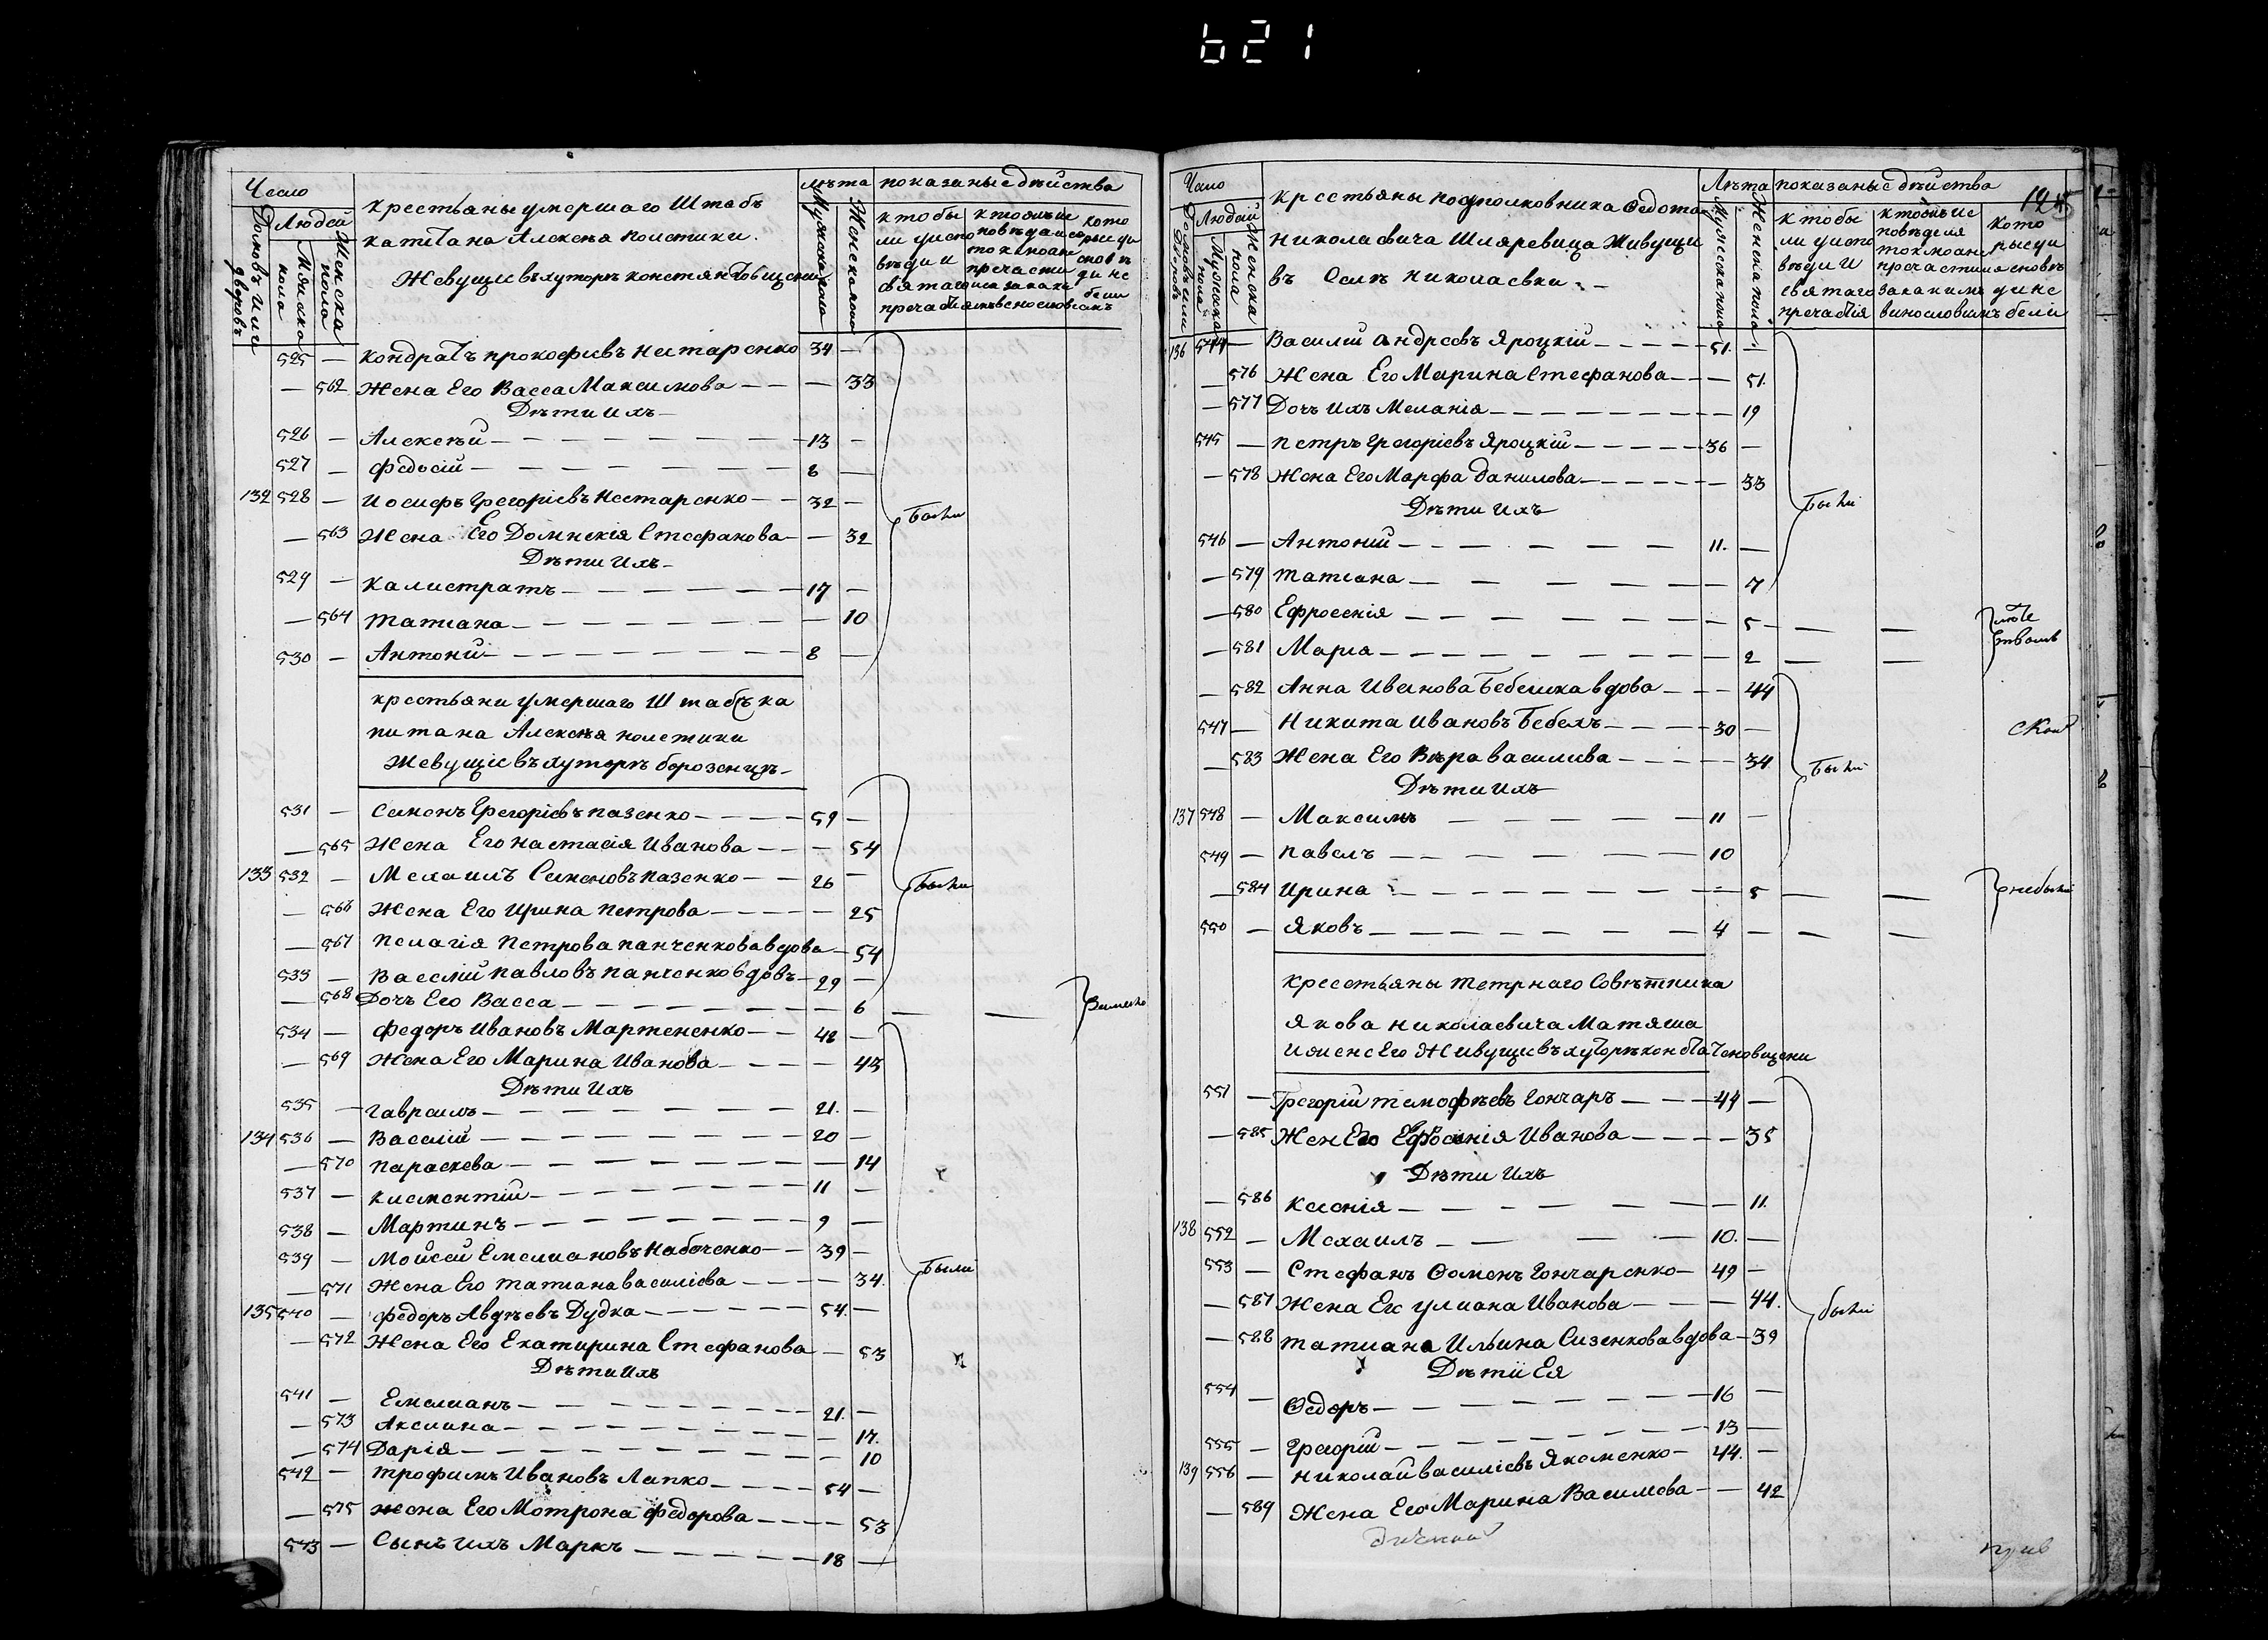 621
Число
Домовъ или дворовъ
Людей
Мужска пола
Женска пола
крестьяны умершаго Штабъ
капитана Алексѣя Полетики.
Жевущие въ хуторѣ констянтовщени
лѣта
Мужска пола
Женска пола
показаные дѣйства
кто бы ли у исповѣди и святаго причастия
кото рые ди не были
525 — Кондратъ Прокофиевъ Нестаренко 34 —
— 562 Жена Его Васса Максимова — 33
Дѣти ихъ
526 — Алексѣй 13 —
527 — Федосій 8 —
132 528 — Иосифъ Грегоріевъ Нестаренко 32 —
Были
— 563 Жена Его Домнекія Стефанова — 32
Дѣти ихъ
529 — Калистратъ 17 —
— 564 Татиана — 10
530 — Антоній 8 —
крестьяни умершаго Штабсъ ка
питана Алексѣя полетики
Жевущіе въ хуторѣ борозенцѣ
531 — Симонъ Грегоріевъ пазенко 59 —
— 565 Жена Его Настасія Иванова — 54
133 532 — Мехаилъ Симоновъ пазенко 26 —
Были
— 566 Жена Его Ирина Петрова — 25
— 567 Пелагія Петрова панченкова вдова — 54
533 — Василій Павловъ Панченко вдовъ 29 —
— 568 Дочъ Его Васса — 6 — —
534 — Федоръ Ивановъ Мартененко 42 —
— 569 Жена Его Марина Иванова — 43
Дѣти Ихъ
535 — Гавраилъ 21. —
134 536 — Василій 20 —
— 570 Параскева — 14
537 — Климентій 11 —
538 — Мартинъ 9 —
539 — Мойсей Емелиановъ Набоченко 39 —
Были
— 571 Жена Его Татиана Василіева — 34.
135 540 — Федоръ Авдѣевъ Дудка 54. —
— 572 Жена Его Екатирина Стефанова — 53
Дѣти Ихъ
541 — Емелианъ 21. —
— 573 Аксиина — 17.
— 574 Дарія — 10
542 — Трофимъ Ивановъ Лапко 54 —
— 575 Жена Его Мотрона Федорова — 53
543 — Сынъ ихъ Маркъ 18 —
Число
Домовъ или дворовъ
Людей
Мужска пола
Женска пола
крестьяны подполковника Федота
Николаевича Шляревица Живущи
въ Селѣ Николаевки
Лѣта
Мужеска пола
Женска пола
показаные дѣйства
125
кто бы ли у исповѣди и святаго причастія
136 544 — Василій Андреевъ Яроцкій 51. —
— 576 Жена Его Марина Стефанова — 51.
— 577 Дочъ Ихъ Меланія — 19
545 — Петръ Грегоріевъ Яроцкій 36 —
— 578 Жена Его Марфа Данилова — 33
Были
Дѣти Ихъ
546 — Антоній 11. —
— 579 Татиана — 7
— 580 Ефросенія — 5 — —
— 581 Мариа — 2 — —
— 582 Анна Иванова Бебешка вдова — 44
547 — Никита Ивановъ Бебехъ 30 —
— 583 Жена Его Вѣра Василива — 34
Были
Дѣти Ихъ
137 548 — Максимъ 11 —
549 — Павелъ 10
— 584 Ирина — 5 — —
небыли
550 — Яковъ 4 — — —
Крестьяны Тетрнаго Совѣтника
Якова Николаевича Матяша
551 — Грегорій Темофѣевъ Гончаръ 44 —
— 585 Жен Его Ефросинія Иванова — 35
Дѣти Ихъ
— 586 Ксенія — 11.
138 552 — Мехаилъ 10. —
553 — Стефанъ Фоменъ Гончаренко 49 —
— 587 Жена Его Улиана Иванова — 44.
были
— 588 Татиана Ильина Сизенкова вдова — 39
Дѣти Ея
554 — Федоръ 16 —
555 — Грегорій 13 —
139 556 — Николай Василіевъ Якеменко 44. —
— 589 Жена Его Марина Василева — 42